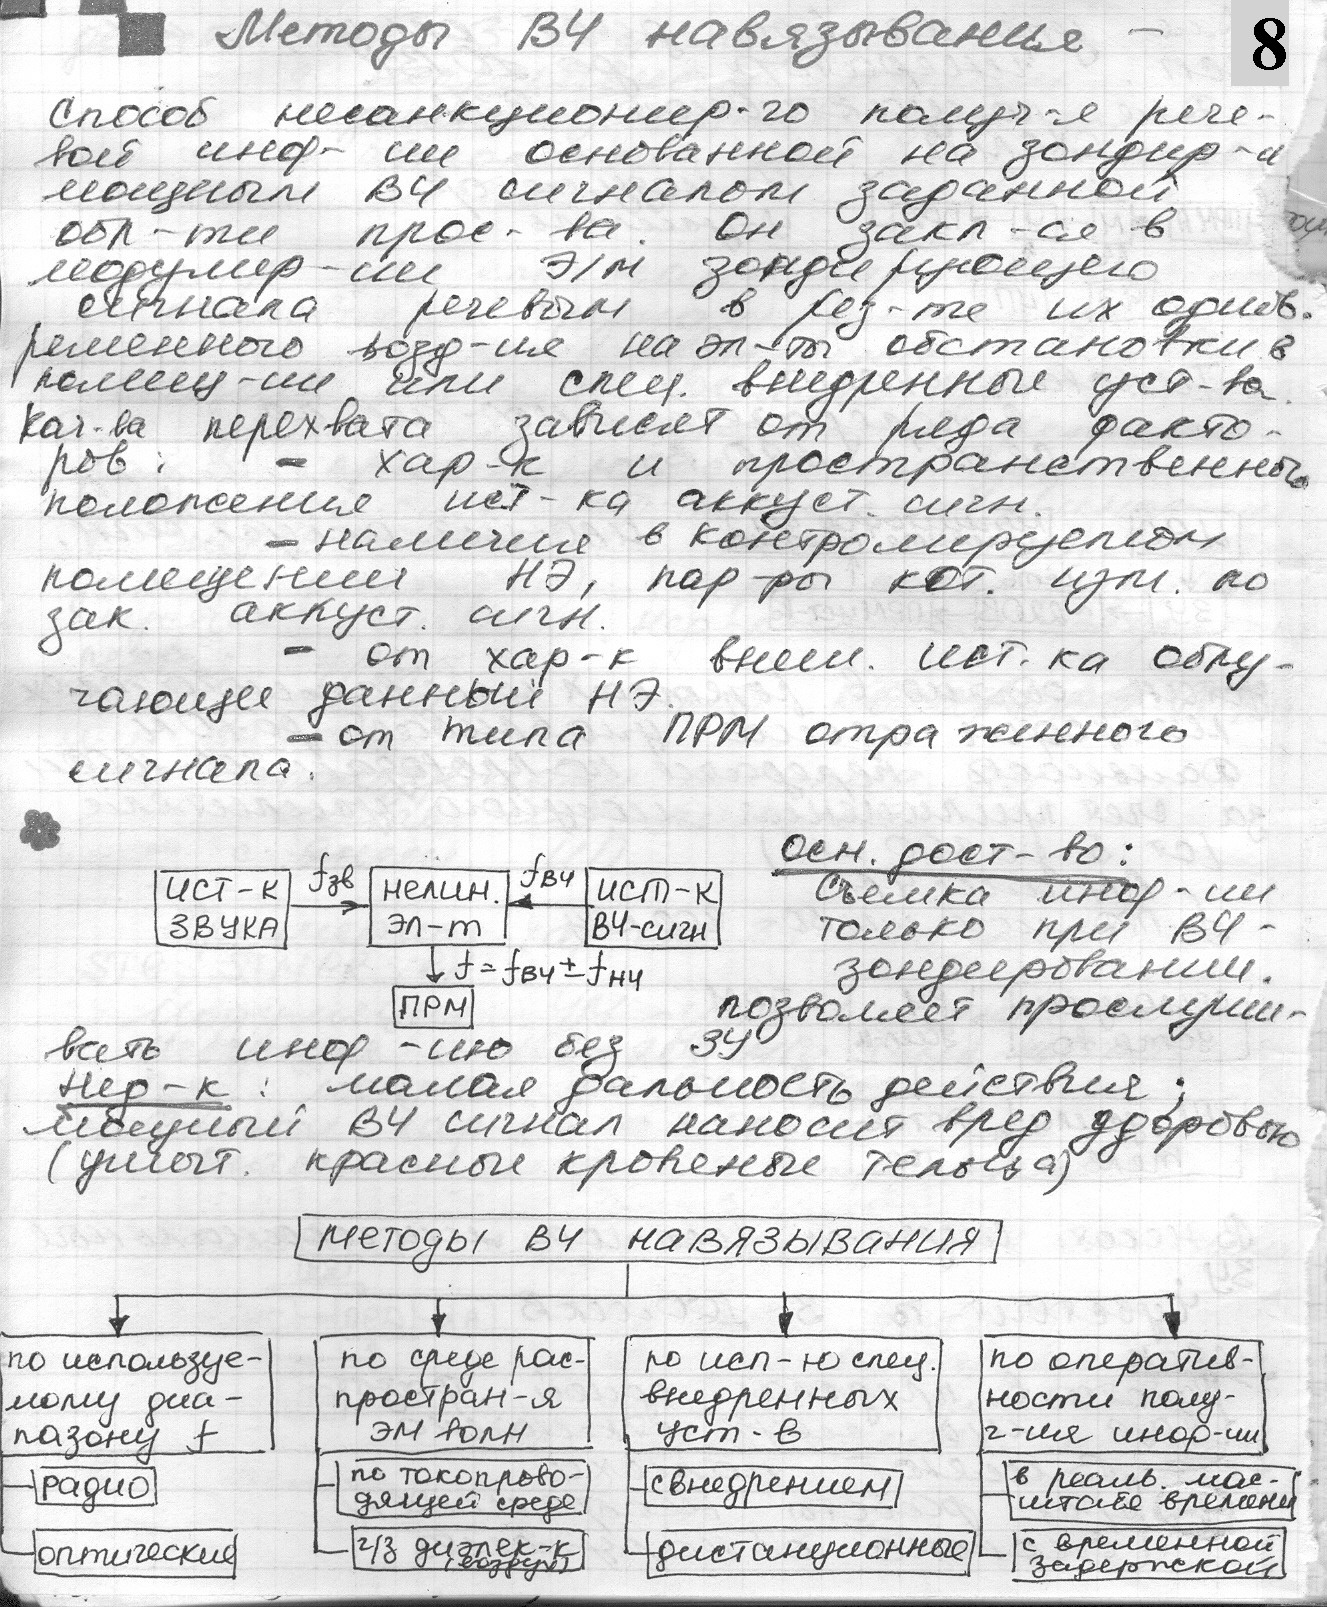 Методы ВЧ навязывания –
8
способ несанкционир-го получ-я рече-
вой инф-ии основанной на зондир-и
мощным ВЧ сигналом заданной
обл-ти прос-ва. Он закл-ся в
модулир-ии Э/М зондирующего
сигнала речевым в рез-те их однов.
ременного возд-ия на эл-ты обстановки в
помещ-ии или спец. внедренные уст-ва.
Кач-ва перехвата зависят от ряда факто-
ров: – хар-к и пространственного
положения ист-ка аккуст. сигн.
– наличия в контролируемом
помещении НЭ, пар-ры кот. изм. по
зак. аккуст. сигн.
– от хар-к внеш. ист.ка облу-
чающее данный НЭ.
– от типа ПРМ отраженного
сигнала.
осн. дост-во:
Съемка инф-ии
только при ВЧ-
зондировании.
ИСТ-К ЗВУКА
fзв
НЕЛИН. ЭЛ-Т
fВЧ
ИСТ-К ВЧ-СИГН
f = fВЧ ± fНЧ
ПРМ
позволяет прослуши-
вать инф-ию без ЗУ
Нед-к: малая дальность действия;
мощный ВЧ сигнал наносит вред здоровью
(уничт. красные кровеные тельца)
МЕТОДЫ ВЧ НАВЯЗЫВАНИЯ
по используе-
мому диа-
пазону f
радио
оптические
по среде рас-
простран-я
ЭМ волн
по токопрово-
дящей среде
ч/з диэлек-к
(воздух)
по исп-ю спец.
внедренных
уст-в
с внедрением
дистанционные
по оператив-
ности полу-
ч-ия инф-ии
в реаль. мас-
штабе времени
с временной
задержкой